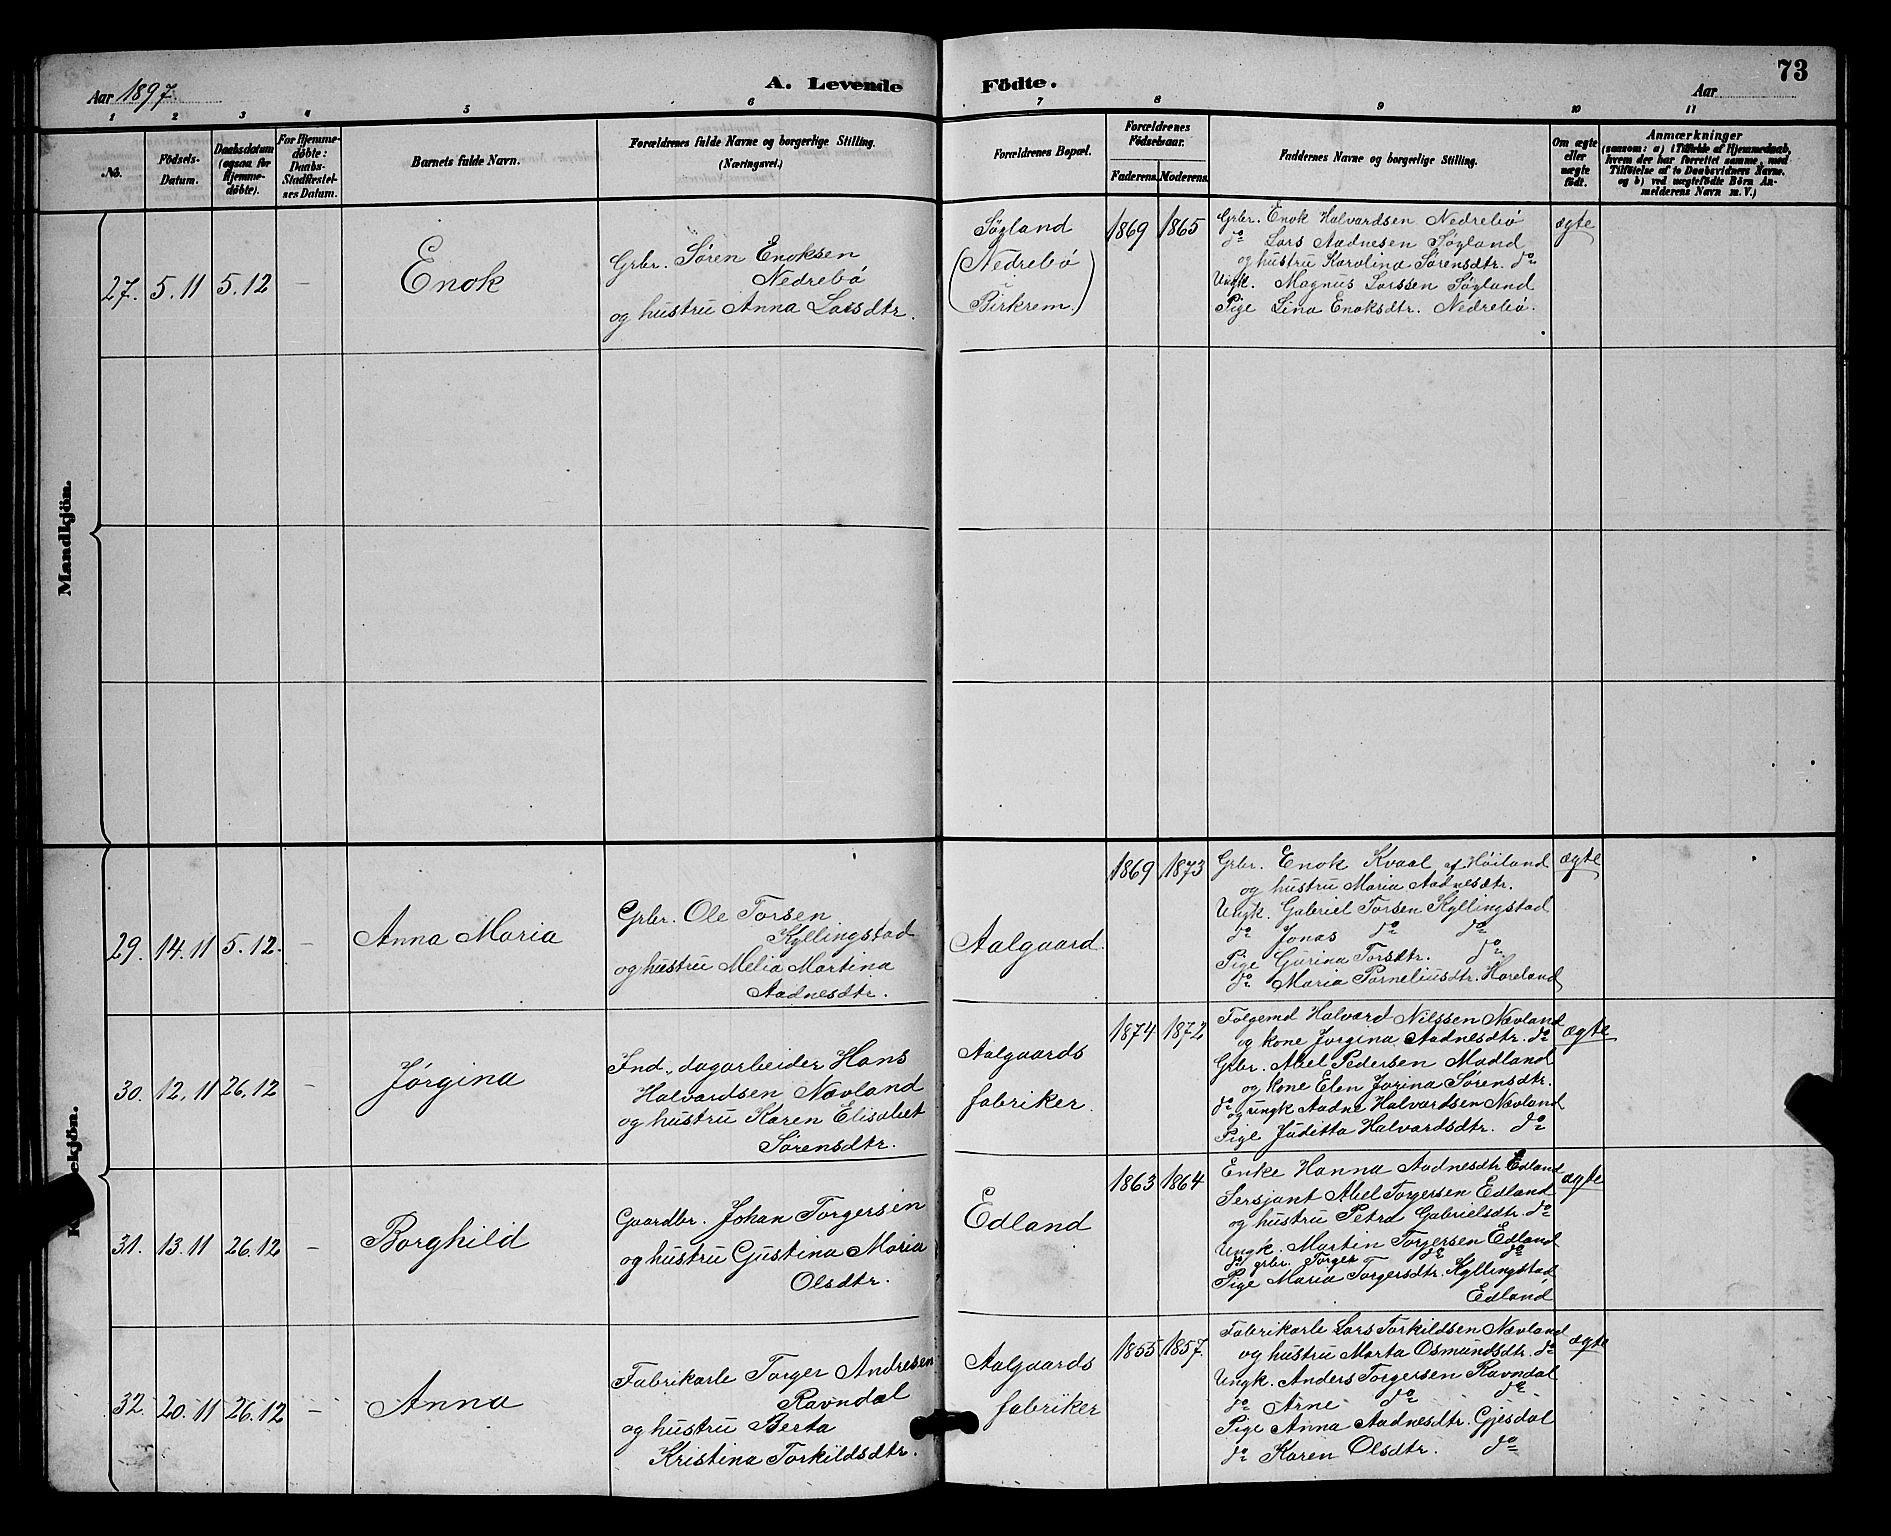 Aar 1897.
A. Levende
Födte.
73
Aar
1 2 3 4 5 6 7 8 9 10 11
No.
Födsels-
Datum.
Daabsdatum
(ogsaa for
Hjemme-
døbte).
For Hjemme-
døbte:
Daabs-
Stadfæstel-
ses Datum.
Barnets fulde Navn.
Forældrenes fulde Navne og borgerlige Stilling.
(Næringsvei.)
Forældrenes Bopæl.
Forældrenes
Födselsaar.
Faderens.
Moderens.
Faddernes Navne og borgerlige Stilling.
Om ægte
eller
uægte
født.
Anmærkninger
(saasom: a) i Tilfælde af Hjemmedaab,
hvem der har forrettet samme, med
Tilföielse af to Daabsvidners Navne.
og b) ved uægtefödte Börn An-
melderens Navn m. V.)
Mandkjön.
27. 5.11 5.12 —
Enok
Grbr. Søren Enoksen
Nedrebø
og hustru Anna Larsdtr.
Søyland
(Nedrebø
Birkrem.)
1869 1865
Grbr. Enok Halvardsen Nedrebø
do Lars Aadnesen Søyland
og hustru Karolina Sørensdtr. do
Ungk. Magnus Larssen Søyland
Pige Lina Enoksdtr. Nedrebø.
ægte
29. 14.11 5.12. —
Anna Maria
Grbr. Ole Torsen
Kyllingstad
og hustru Melia Martina
Aadnesdtr.
Aalgaard.
1869 1873
Grbr. Enok Kvaal af Høiland
og hustru Maria Aadnesdtr.
Ungk. Gabriel Torsen Kyllingstad
do Jonas do do
Pige Gurina Torsdtr. do
do Maria Torneliusdtr. Horeland
ægte
30. 12.11 26.12 —
Jørgina
Ind., dagarbeider Hans
Halvardsen Nævland
og hustru Karen Elisabet
Sørensdtr.
Aalgaards
fabriker.
1874 1872
Folgemd Halvard Nilssen Nævland
og kone Jørgina Aadnesdtr. do
Grbr. Abel Pedersen Madland
og kone Elen Jorina Sørensdtr.
do og ungk Aadne Halvardsen Nævland
Pige Juditta Halvardsdtr. do
ægte
31. 13.11 26.12 —
Borghild
Gaardbr. Johan Torgersen
og hustru Gustina Maria
Olsdtr.
Edland
1863 1864
Enke Hanna Aadnesdtr Edland
Sersjant Abel Torgersen Edland
og hustru Petra Gabrielsdtr. do
Ungk. Martin Torgersen Edland
do grbr. Torger do do
Pige Maria Torgersdtr. Kyllingstad
Edland
ægte
32. 20.11 26.12 —
Anna
Fabrikarb Torger Andresen
Ravndal
og hustru Berta
Kristina Torkildsdtr.
Aalgaards
fabriker
1855 1857.
Fabrikarb Lars Torkildsen Nævland
og hustru Marta Osmundsdtr. do
Ungk. Anders Torgersen Ravndal
do Arne do do
Pige Anna Aadnesdtr. Gjesdal
do Karen Olsdtr. do
ægte